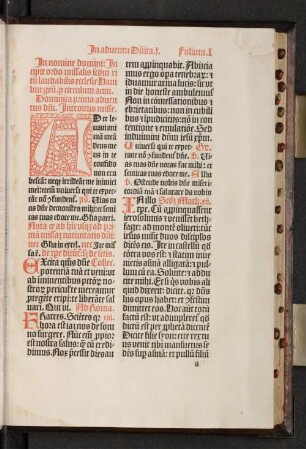 In adventu Dñica.j. Folium.I
In nomine domini: In
cipit ordo missalis scdm ri
tũ laudabilis ecclesie Bam
bergeñ. ꝑ circulum anni.
Dominica prima adven
tus dñi. Introitus misse.
AD te
levavi
aniã
meã
deus me
us in te
confido
non eru
bescã: neqꝫ irrideãt me inimici
mei: eteñ universi qui te expe
ctãt non ꝯfundent͂. p̃s. Vias tu
as dñe demonstra michi: et semi
tas tuas edoce me. Gl'ia patri.
etc̃.
Excita q̃s dñe Collec.
potentiã tuã et veni: ut
ab imminentibus pctõꝝ no
stroꝝ periculis mereamur te
ꝓtegẽte eripi: te liberãte sal
vari. Qui vi. Ad Roma.
Fratres. Sciẽtes qꝛ
hora est iaꝫ nos de som
no surgere. Nũc em̃ ꝓpi
or est nostra salus: q̃ cũ credi
dimus. Nox p̃cessit dies au
tem appinqͣbit. Abicia
mus ergo oꝑa tenebraꝝ: et
induamur arma lucis: sic ut
in die honeste ambulemus.
Non in comessationibus et
ebrietatibus: non in cubili
bus et ĩpudicitijs: nõ in con
tentione et emulatiõe. Sed
induimini dñm iesũ xp̃m.
Universi qui te expe Gra.
ctãt nõ ꝯfundent͂ dñe. V̷. Vi
as tuas dñe notas fac michi: et se
mitas tuas edoce me. Alla
V̷. Ostende nobis dñe miseri
cordiã tuã et salutare tuũ da nobis
In illo Scdꝫ Math. xxi.
tpe. Cũ appinquasset
ierosolimis et venisset beth
fage: ad montẽ oliveti: tũc
iesus misit duos discipľos
dicẽs eis. Ite in castellũ qď
cõtra vos est: et statim in
venietis asinã alligatã: et pullũ
cũ ea. Solvite: et ad
ducite michi. Et si q̃s vobis ali
quid dixerit: dicite. qꝛ dñs
hijs opus habet: et ꝯfestim
dimittet eos. Hoc aũt totũ
factũ est: ut adimpleret͂ qď
dictũ est per ꝓphetã dicentẽ
Dicite filie syon: ecce rex tu
us venit tibi mansuetus se
dẽs sup asinã: et pullũ filiũ
a